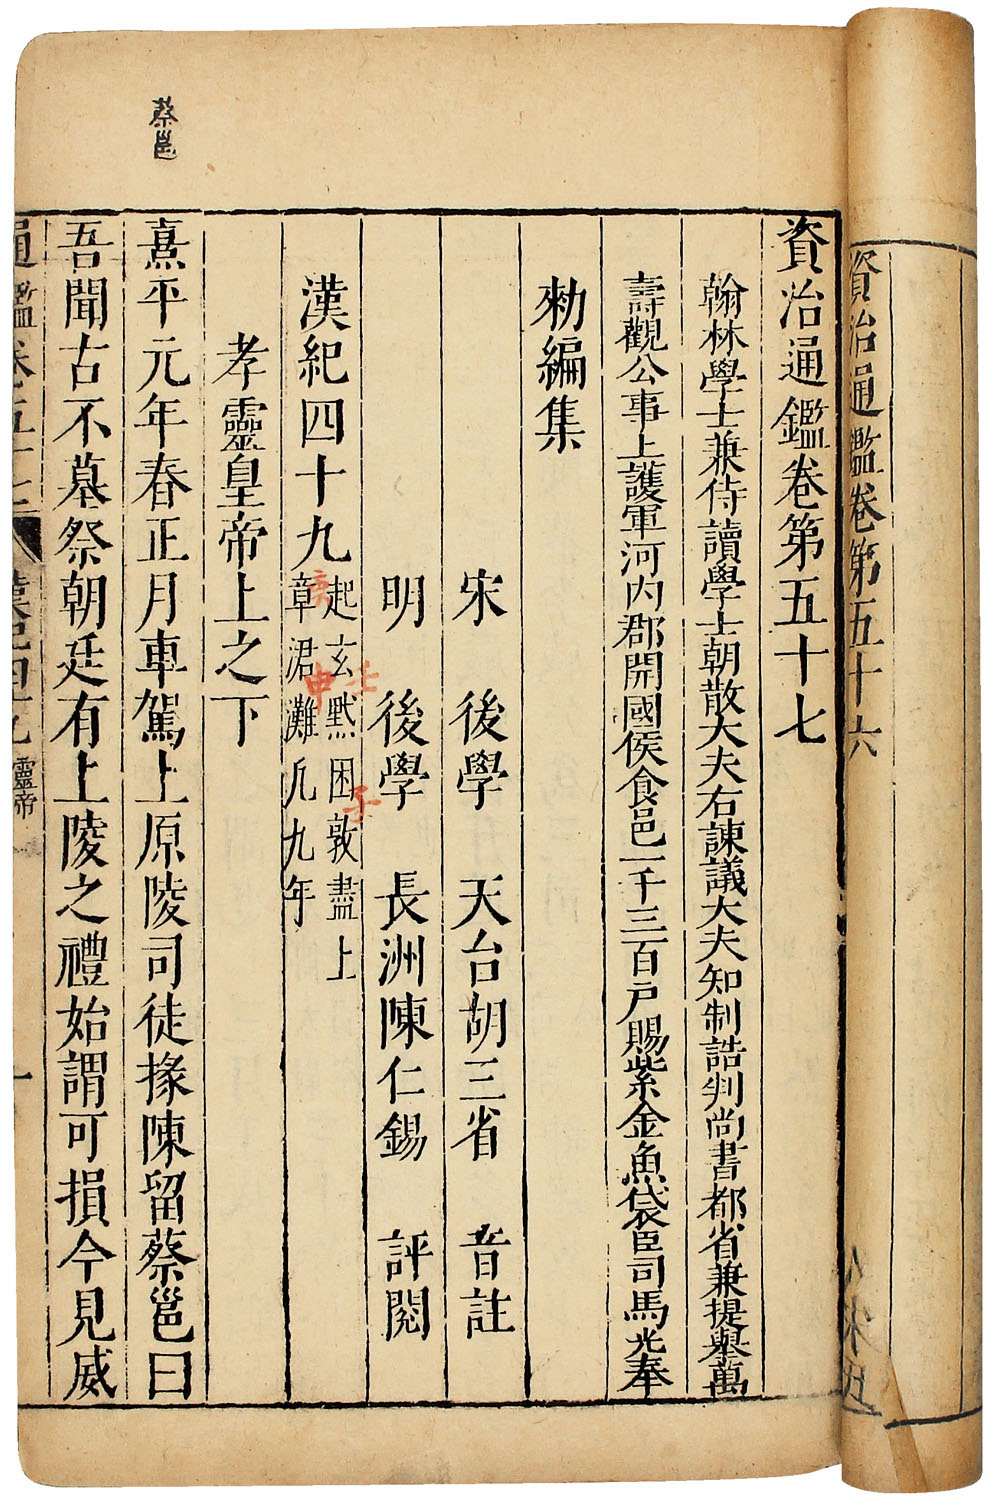 資治通鑑卷第五十六
資治通鑑卷第五十七
翰林學士兼侍讀學士朝散大夫右諫議大夫知制誥判尚書都省兼提舉萬
壽觀公事上護軍河內郡開國侯食邑一千三百戶賜紫金魚袋臣司馬光奉
勑編集
宋 後學 天台胡三省 音註
明 後學 長洲陳仁錫 評閱
漢紀四十九
起玄黓困敦盡上
章涒灘凢九年
壬子
庚申
孝靈皇帝上之下
蔡邕
熹平元年春正月車駕上原陵司徒掾陳留蔡邕曰
吾聞古不墓祭朝廷有上陵之禮始謂可損今見威
通鑑卷五十七 漢紀四九 靈帝 一